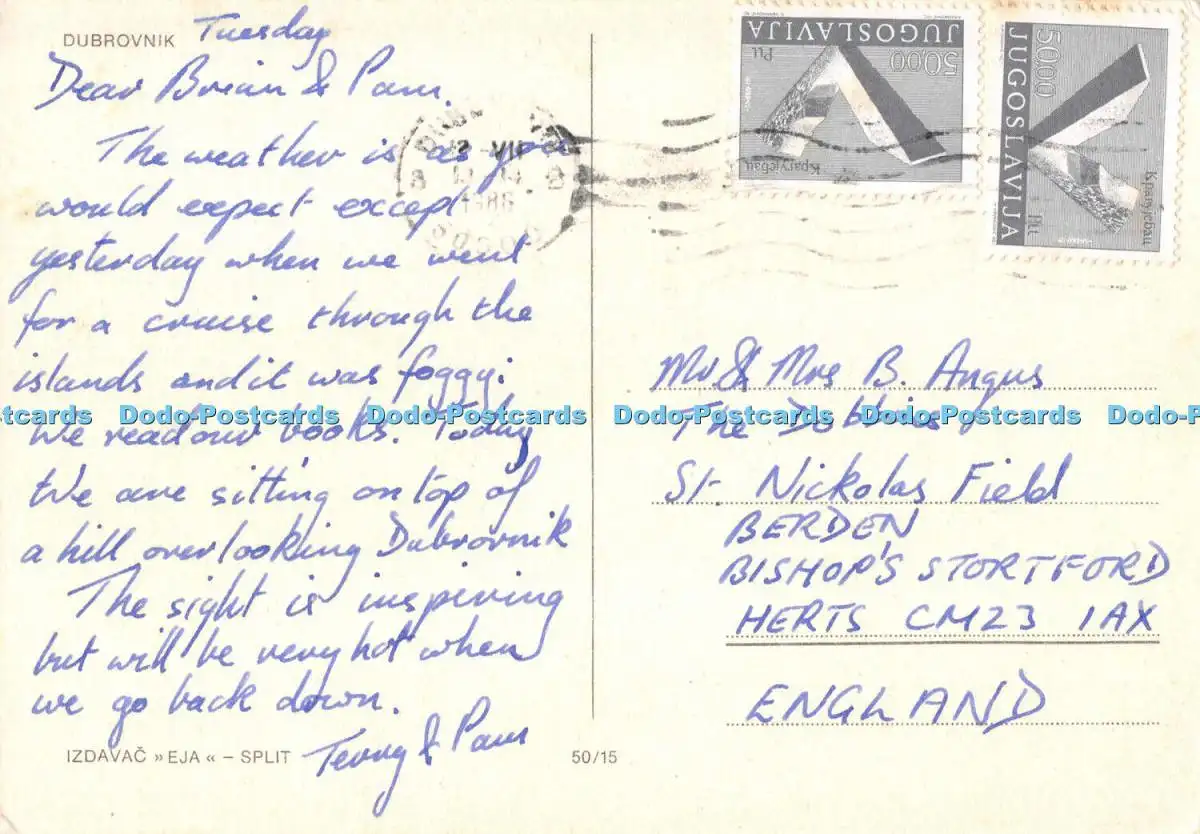 DUBROVNIK
Tuesday
Dear Brian & Pam.
The weather is as you
would expect except
yesterday when we went
for a cruise through the
islands and it was foggy.
We read our books. Today
We are sitting on top of
a hill overlooking Dubrovnik
The sight is inspiring
but will be very hot when
we go back down.
Terry & Pam
IZDAVAČ »EJA« – SPLIT
50/15
JUGOSLAVIJA
50,00
JUGOSLAVIJA
50,00
VIII
1986
Mr & Mrs B. Angus
The
St. Nickolas Field
BERDEN
BISHOP'S STORTFORD
HERTS CM23 1AX
ENGLAND
Dodo-Postcards Dodo-Postcards Dodo-Postcards Dodo-Postcards